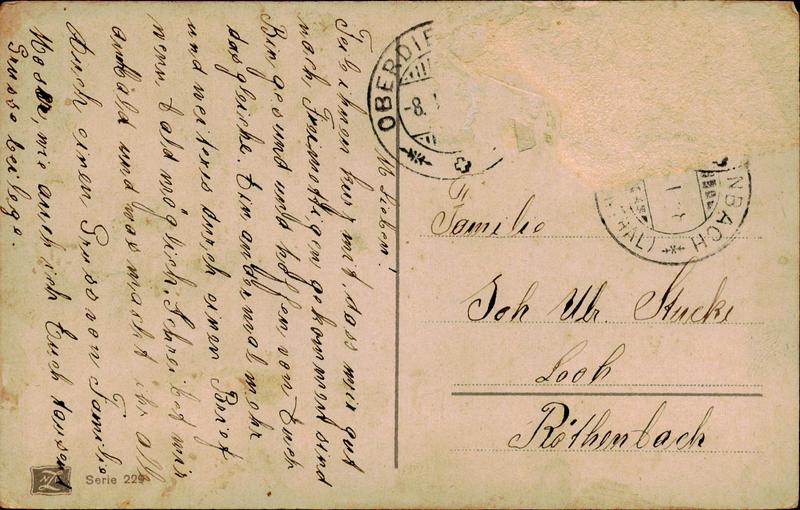 M. Lieben!
Teile ihnen kurz mit, dass wir gut
nach Freimettigen gekommen sind
Bin gesund und hoffen, von Euch
das gleiche. Ein andermal mehr
und weiteres durch einen Brief
wenn bald möglich. Schreibet mir
auch bald und was macht ihr All
Auch einen Gruss von Familie
Moser, wie auch ich Euch tausend
Grüsse beilege.
OBERDIE
-8.
NBACH
HAL)
Familie
Joh Ulr. Stucki
Looh
Röthenbach
Serie 229